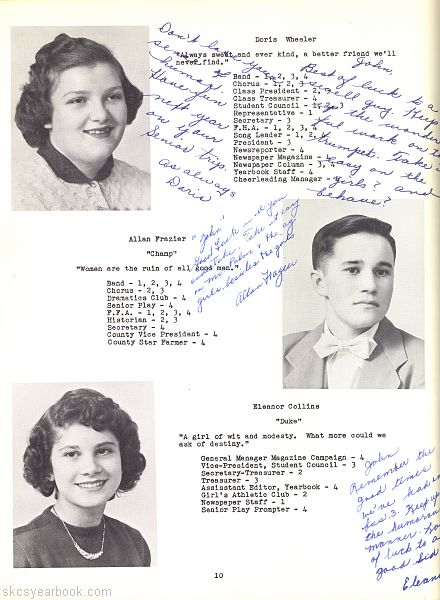 Doris Wheeler
"Always sweet and ever kind, a better friend we'll
never find."
Band - 1, 2, 3, 4
Chorus - 1, 2, 3
Class President - 2,
Class Treasurer - 4
Student Council - 1, 2, 3
Representative - 1
Secretary - 3
F.H.A. - 1, 2, 3, 4
Song Leader - 1, 2,
President - 3
Newsreporter - 4
Newspaper Magazine - 4
Newspaper Column - 3, 4
Yearbook Staff - 4
Cheerleading Manager - 4
Don't
Have fun
next year
on your
Senior trip
as always
Doris
John
Best of luck to a
swell guy. Keep
up the wonderful
work on
trumpet. Take it
easy on the
girls? and
behave?
Allan Frazier
"Champ"
"Women are the ruin of all good men."
Band - 1, 2, 3, 4
Chorus - 2, 3
Dramatics Club - 4
Senior Play - 4
F.F.A. - 1, 2, 3, 4
Historian - 2, 3
Secretary - 4
County Vice President - 4
County Star Farmer - 4
"John"
Good luck to you
and Take it easy
on Mr. & the
girls besides the girls
Allan Frazier
Eleanor Collins
"Duke"
"A girl of wit and modesty. What more could we
ask of destiny."
General Manager Magazine Campaign - 4
Vice-President, Student Council - 3
Secretary-Treasurer - 2
Treasurer - 3
Assistant Editor, Yearbook - 4
Girl's Athletic Club - 2
Newspaper Staff - 1
Senior Play Prompter - 4
John
Remember the
good times
we've had in
bus. 3. Keep up
the humorous
manner.
of luck to a
good kid
Eleanor
10
skcsyearbook.com